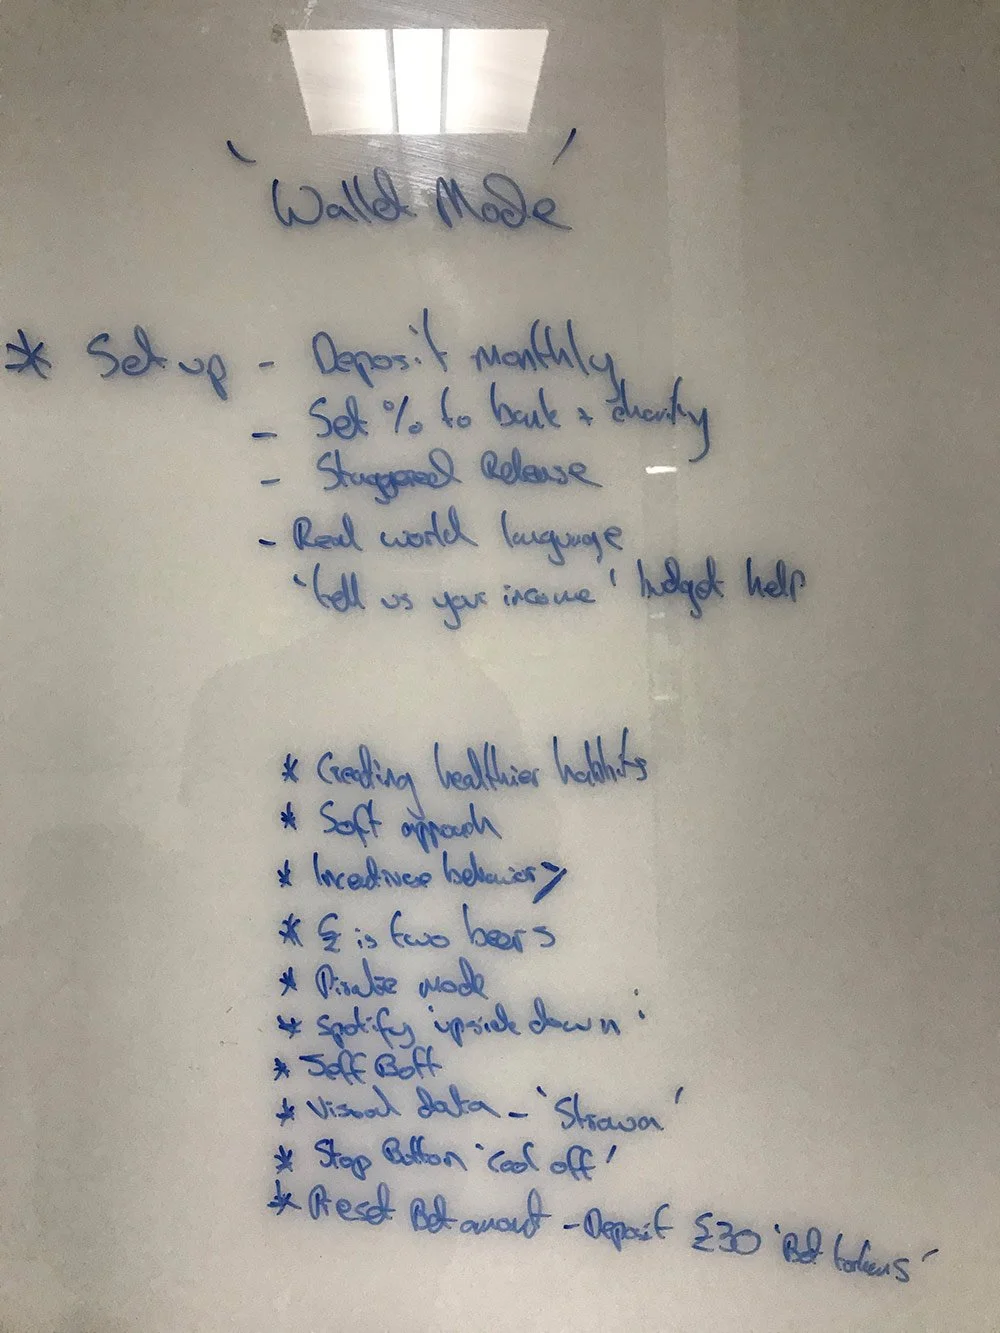 'Wallet Mode'
* Set up - Deposit monthly
- Set % to bank + charity
- Staggered Release
- Real world language
'tell us your income' budget help
* Creating healthier
* Soft approach
* Incentivise behaviour
* £ is two beers
* Private mode
* Spotify 'upside down'
* Jeff Boff
* Visual data - 'Strava'
* Stop Button 'cool off'
* Preset Bet amount - Deposit £30 'Bet tokens'